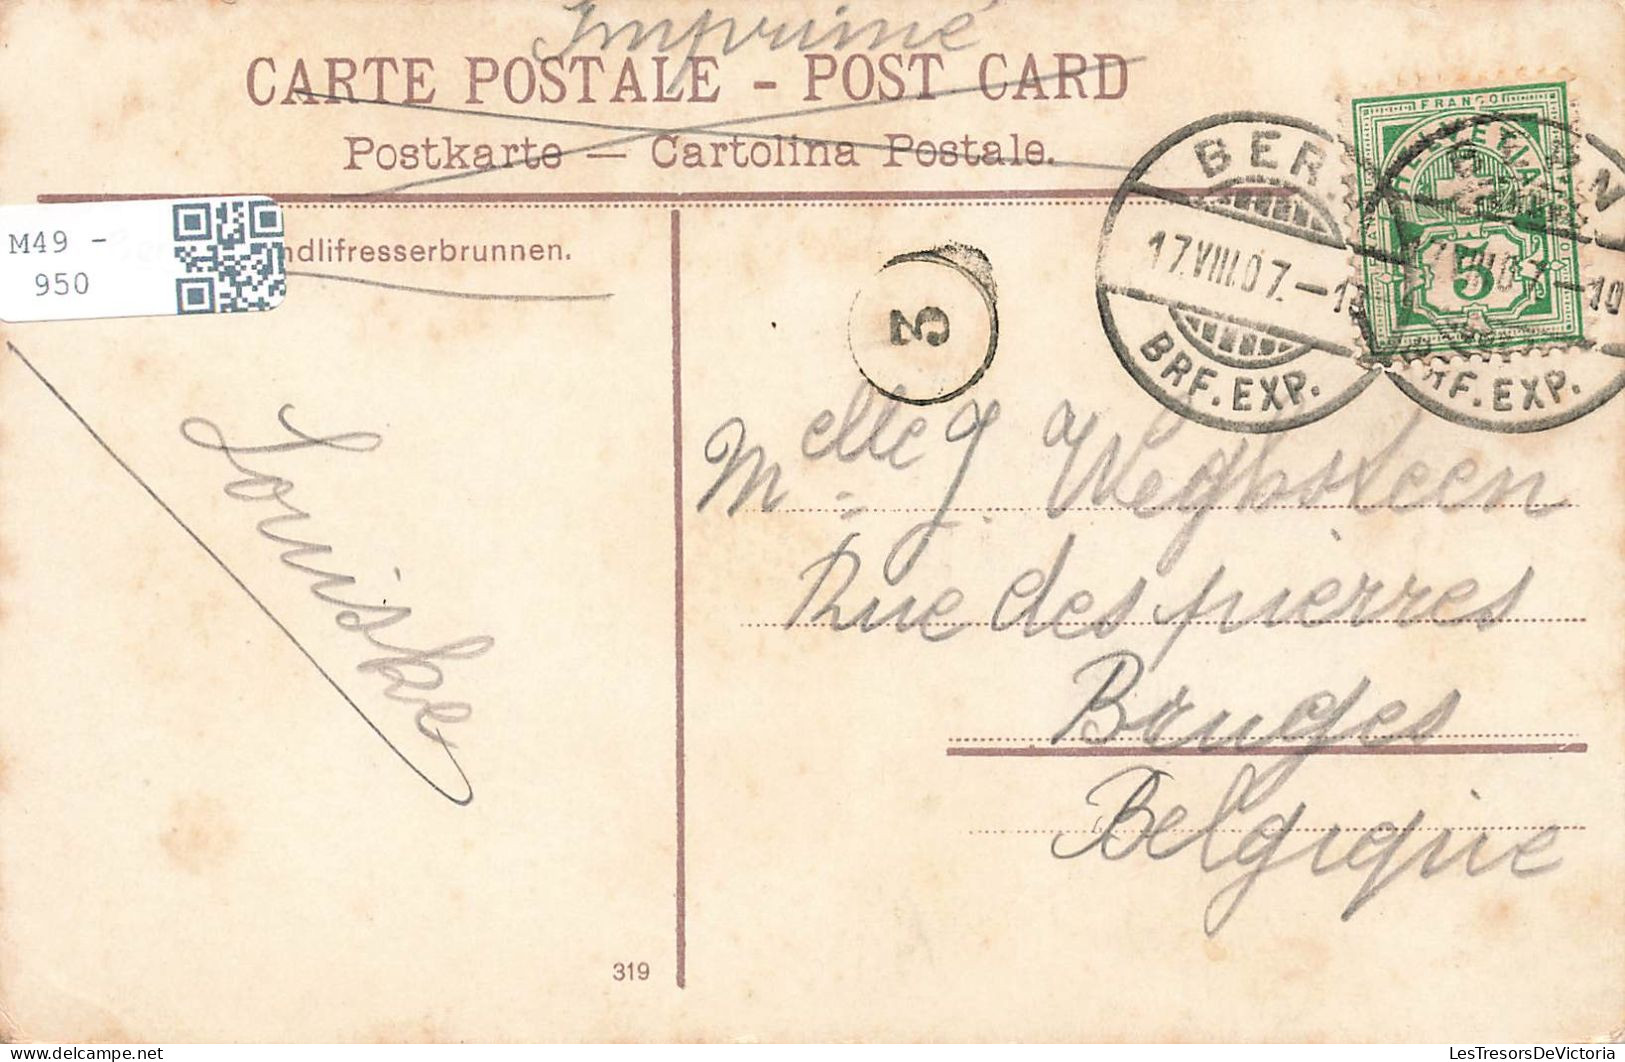 Imprimé
CARTE POSTALE - POST CARD
Postkarte — Cartolina Postale.
ndlifresserbrunnen.
M49 -
950
BERN
17.VIII.07.—1
BRF. EXP.
BERN
17.VIII.07.—10
BRF. EXP.
FRANCO
HELVETIA
5
3
Melle J. Weghsteen
Rue des pierres
Bruges
Belgique
Louiske
319
LesTresorsDeVictoria